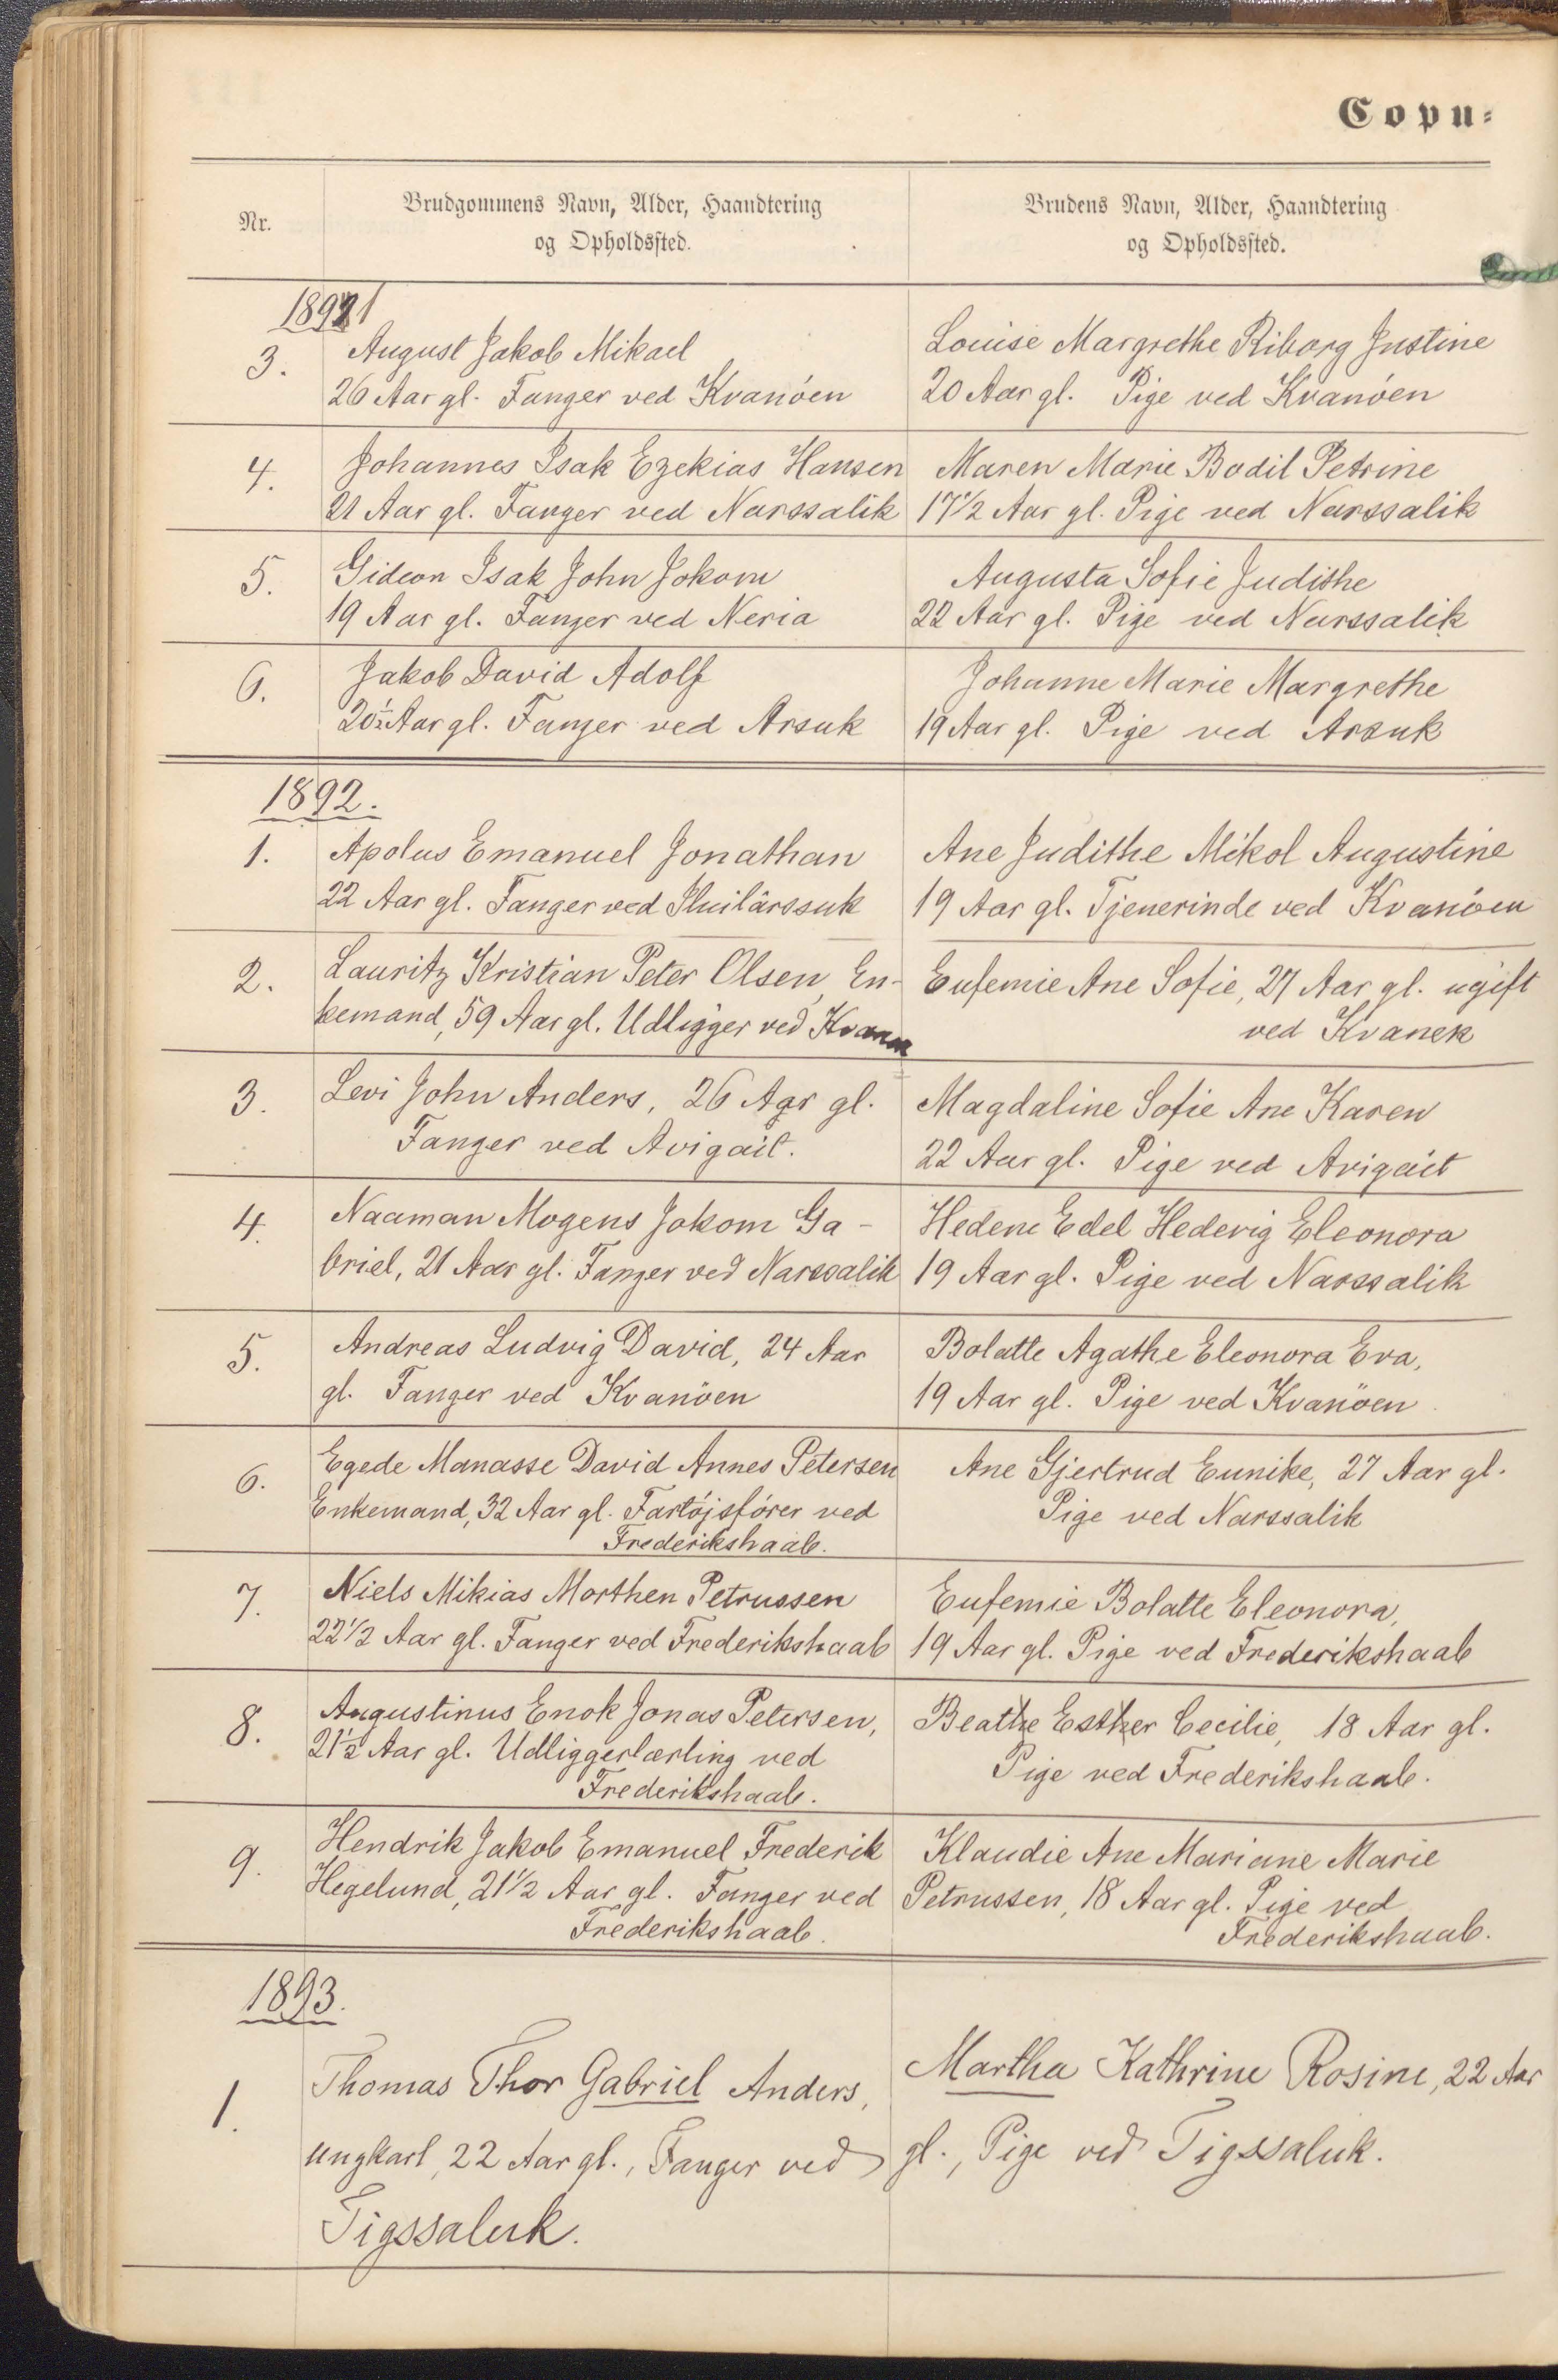 Copu-
Nr.
Brudgommens Navn, Alder, Haandtering
og Opholdssted.
Brudens Navn, Alder, Haandtering
og Opholdssted.
1891
3.
August Jakob Mikael
26 Aar gl. Fanger ved Kvanöen
Louise Margrethe Riborg Justine
20 Aar gl. Pige ved Kvanöen
4.
Johannes Isak Ezekias Hansen
21 Aar gl. Fanger ved Narssalik
Maren Marie Bodil Petrine
17 1/2 Aar gl. Pige ved Narssalik
5.
Gideon Isak John Jokom
19 Aar gl. Fanger ved Neria
Augusta Sofie Judithe
22 Aar gl. Pige ved Narssalik
6.
Jakob David Adolf
20 1/2 Aar gl. Fanger ved Arsuk
Johanne Marie Margrethe
19 Aar gl. Pige ved Arsuk
1892.
1.
Apolus Emanuel Jonathan
22 Aar gl. Fanger ved Iluilârssuk
Ane Judithe Mikol Augustine
19 Aar gl. Tjenerinde ved Kvanöen
2.
Lauritz Kristian Peter Olsen, En-
kemand, 59 Aar gl. Udligger ved
Eufemie Ane Sofie, 27 Aar gl. ugift
ved Kvanek
3.
Levi John Anders, 26 Aar gl.
Fanger ved Avigait.
Magdaline Sofie Ane Karen
22 Aar gl. Pige ved Avigait
4.
Naaman Mogens Jokom Ga-
briel, 21 Aar gl. Fanger ved Narssalik
Hedene Edel Hedevig Eleonora
19 Aar gl. Pige ved Narssalik
5.
Andreas Ludvig David, 24 Aar
gl. Fanger ved Kvanöen
Bolatte Agathe Eleonora Eva,
19 Aar gl. Pige ved Kvanöen.
6.
Egede Manasse David Annes Petersen
Enkemand, 32 Aar gl. Fartöjsförer ved
Frederikshaab.
Ane Gjertrud Eunike, 27 Aar gl.
Pige ved Narssalik
7.
Niels Mikias Morthen Petrussen
22 1/2 Aar gl. Fanger ved Frederikshaab
Eufemie Bolatte Eleonora,
19 Aar gl. Pige ved Frederikshaab
8.
Augustinus Enok Jonas Petersen,
21 1/2 Aar gl. Udliggerlærling ved
Frederikshaab.
Beathe Esther Cecilie, 18 Aar gl.
Pige ved Frederikshaab.
9.
Hendrik Jakob Emanuel Frederik
Hegelund, 21 1/2 Aar gl. Fanger ved
Frederikshaab.
Klaudie Ane Mariane Marie
Petrussen, 18 Aar gl. Pige ved
Frederikshaab.
1893.
1.
Thomas Thor Gabriel Anders,
ungkarl, 22 Aar gl., Fanger ved
Tigssaluk.
Martha Kathrine Rosine, 22 Aar
gl., Pige ved Tigssaluk.